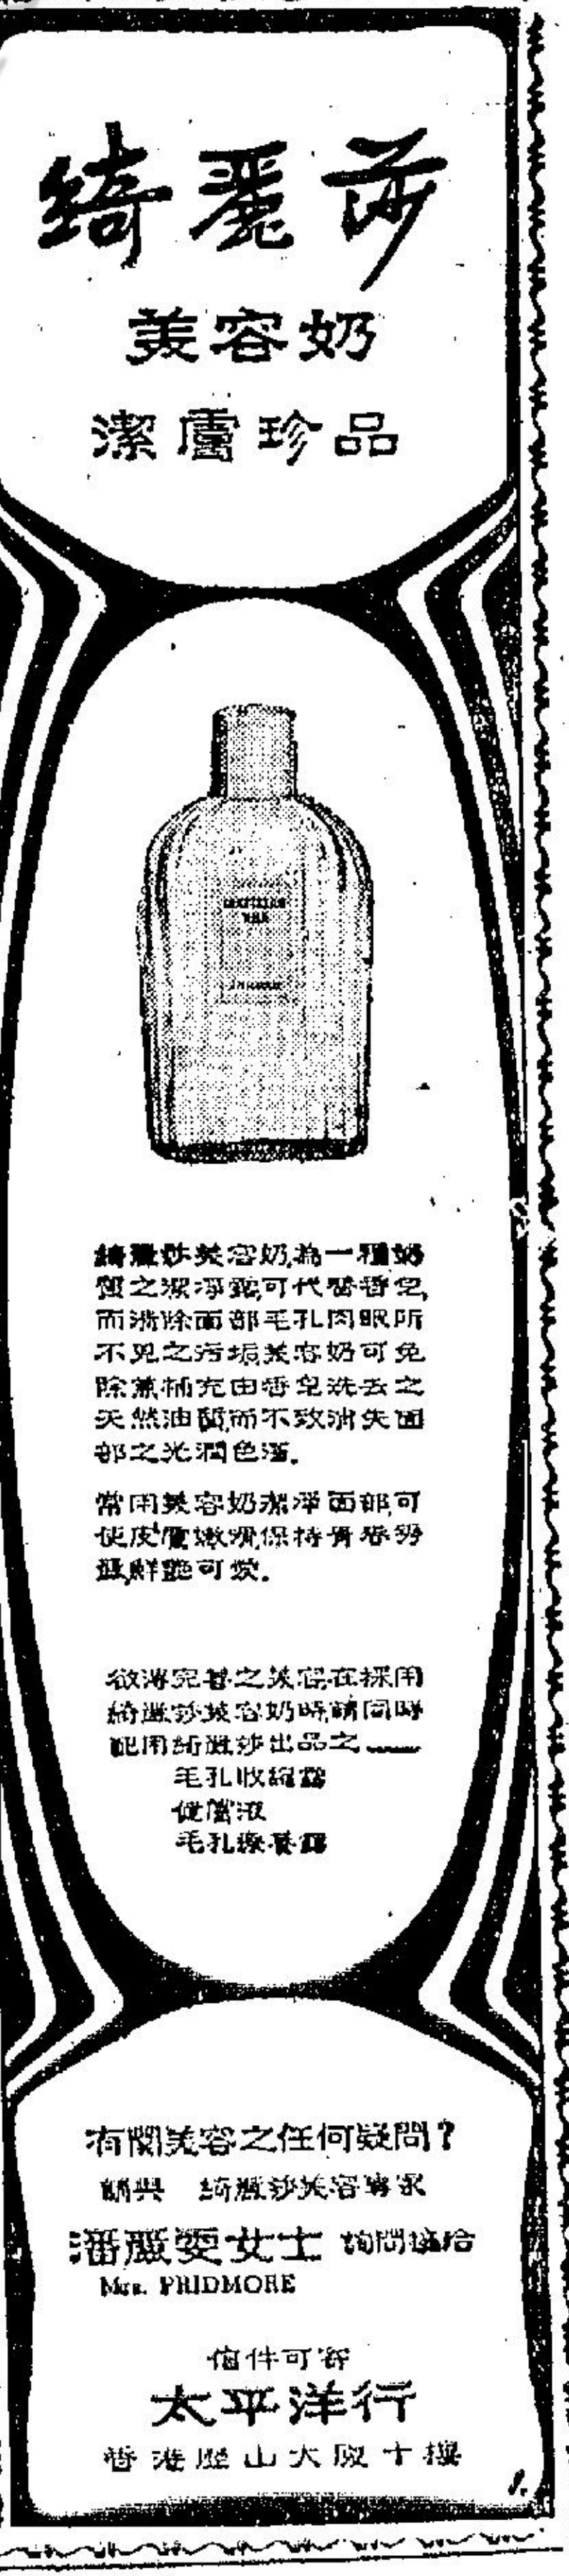 綺麗莎
美容奶
潔膚珍品
綺麗莎美容奶,為一種奶
質之潔淨露,可代替香皂,
而清除面部毛孔肉眼所
不見之污垢,美容奶可免
除兼補充由香皂洗去之
天然油質,而不致消失面
部之光潤色澤。
常用美容奶潔淨面部,可
使皮膚嫩滑,保持青春秀
麗,鮮艷可愛。
欲溥完善之美容,在採用
綺麗莎美容奶時,請同時
配用綺麗莎出品之——
毛孔收縮露
健膚液
毛孔療養露
有關美容之任何疑問?
請與 綺麗莎美容專家
潘麗雯女士 詢問接洽
Mrs. PRIDMORE
信件可寄
太平洋行
香港歷山大廈十樓